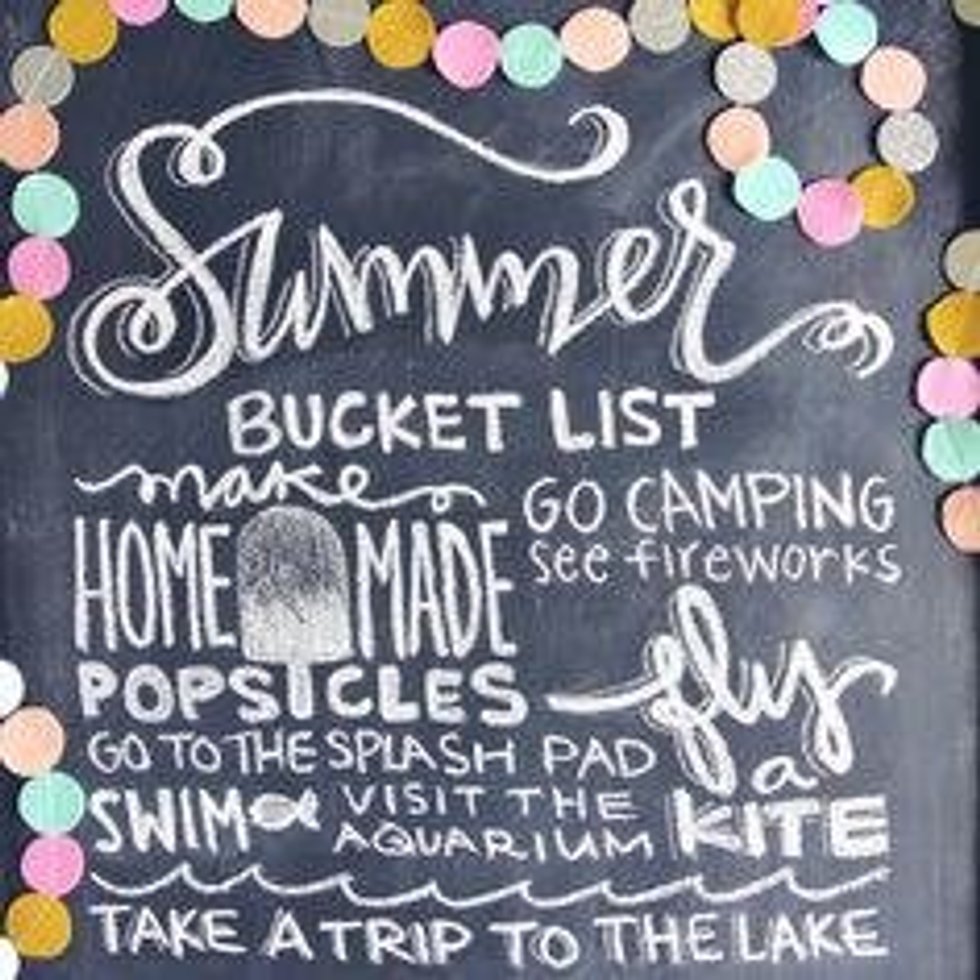 Summer
BUCKET LIST
make
HOME MADE
POPSICLES
GO CAMPING
see fireworks
fly
a
KITE
GO TO THE SPLASH PAD
SWIM
VISIT THE
AQUARIUM
TAKE A TRIP TO THE LAKE